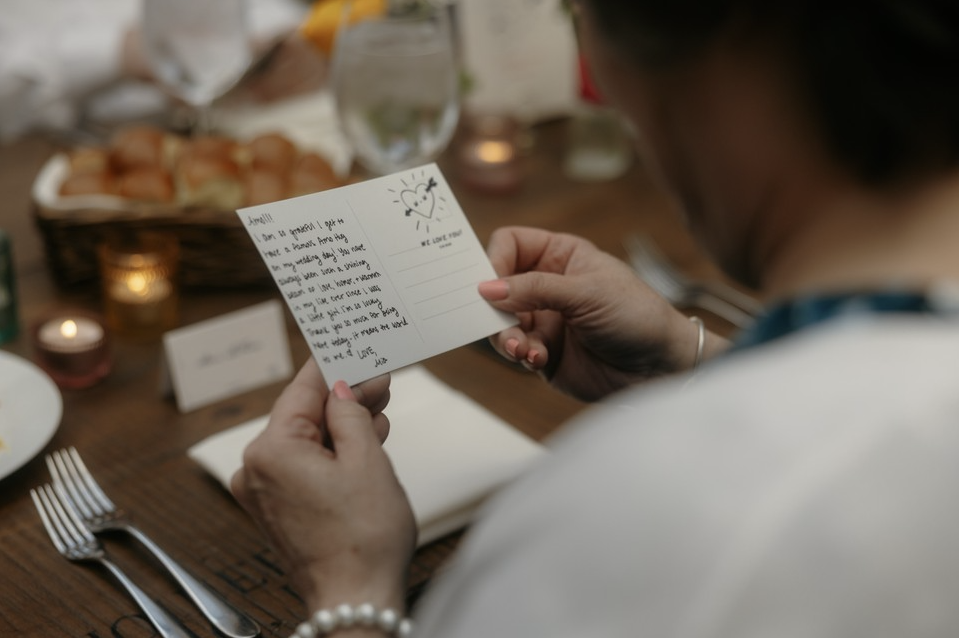 I am so grateful I get to
have a famous Hug
on my wedding day! You have
always been such a shining
beacon of love, honor, + warmth
in my life ever since I was
a little girl. I'm so lucky.
Thank you so much for being
here today - it means the world
to me. LOVE,
WE LOVE YOU!